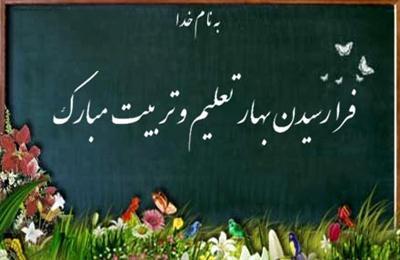 به نام خدا
فرا رسیدن بهار تعلیم و تربیت مبارک